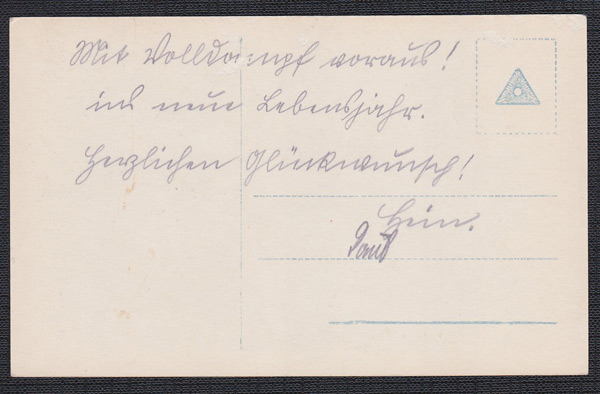 Mit Volldampf voraus!
ins neue Lebensjahr.
Herzlichen Glückwunsch!
Hein.